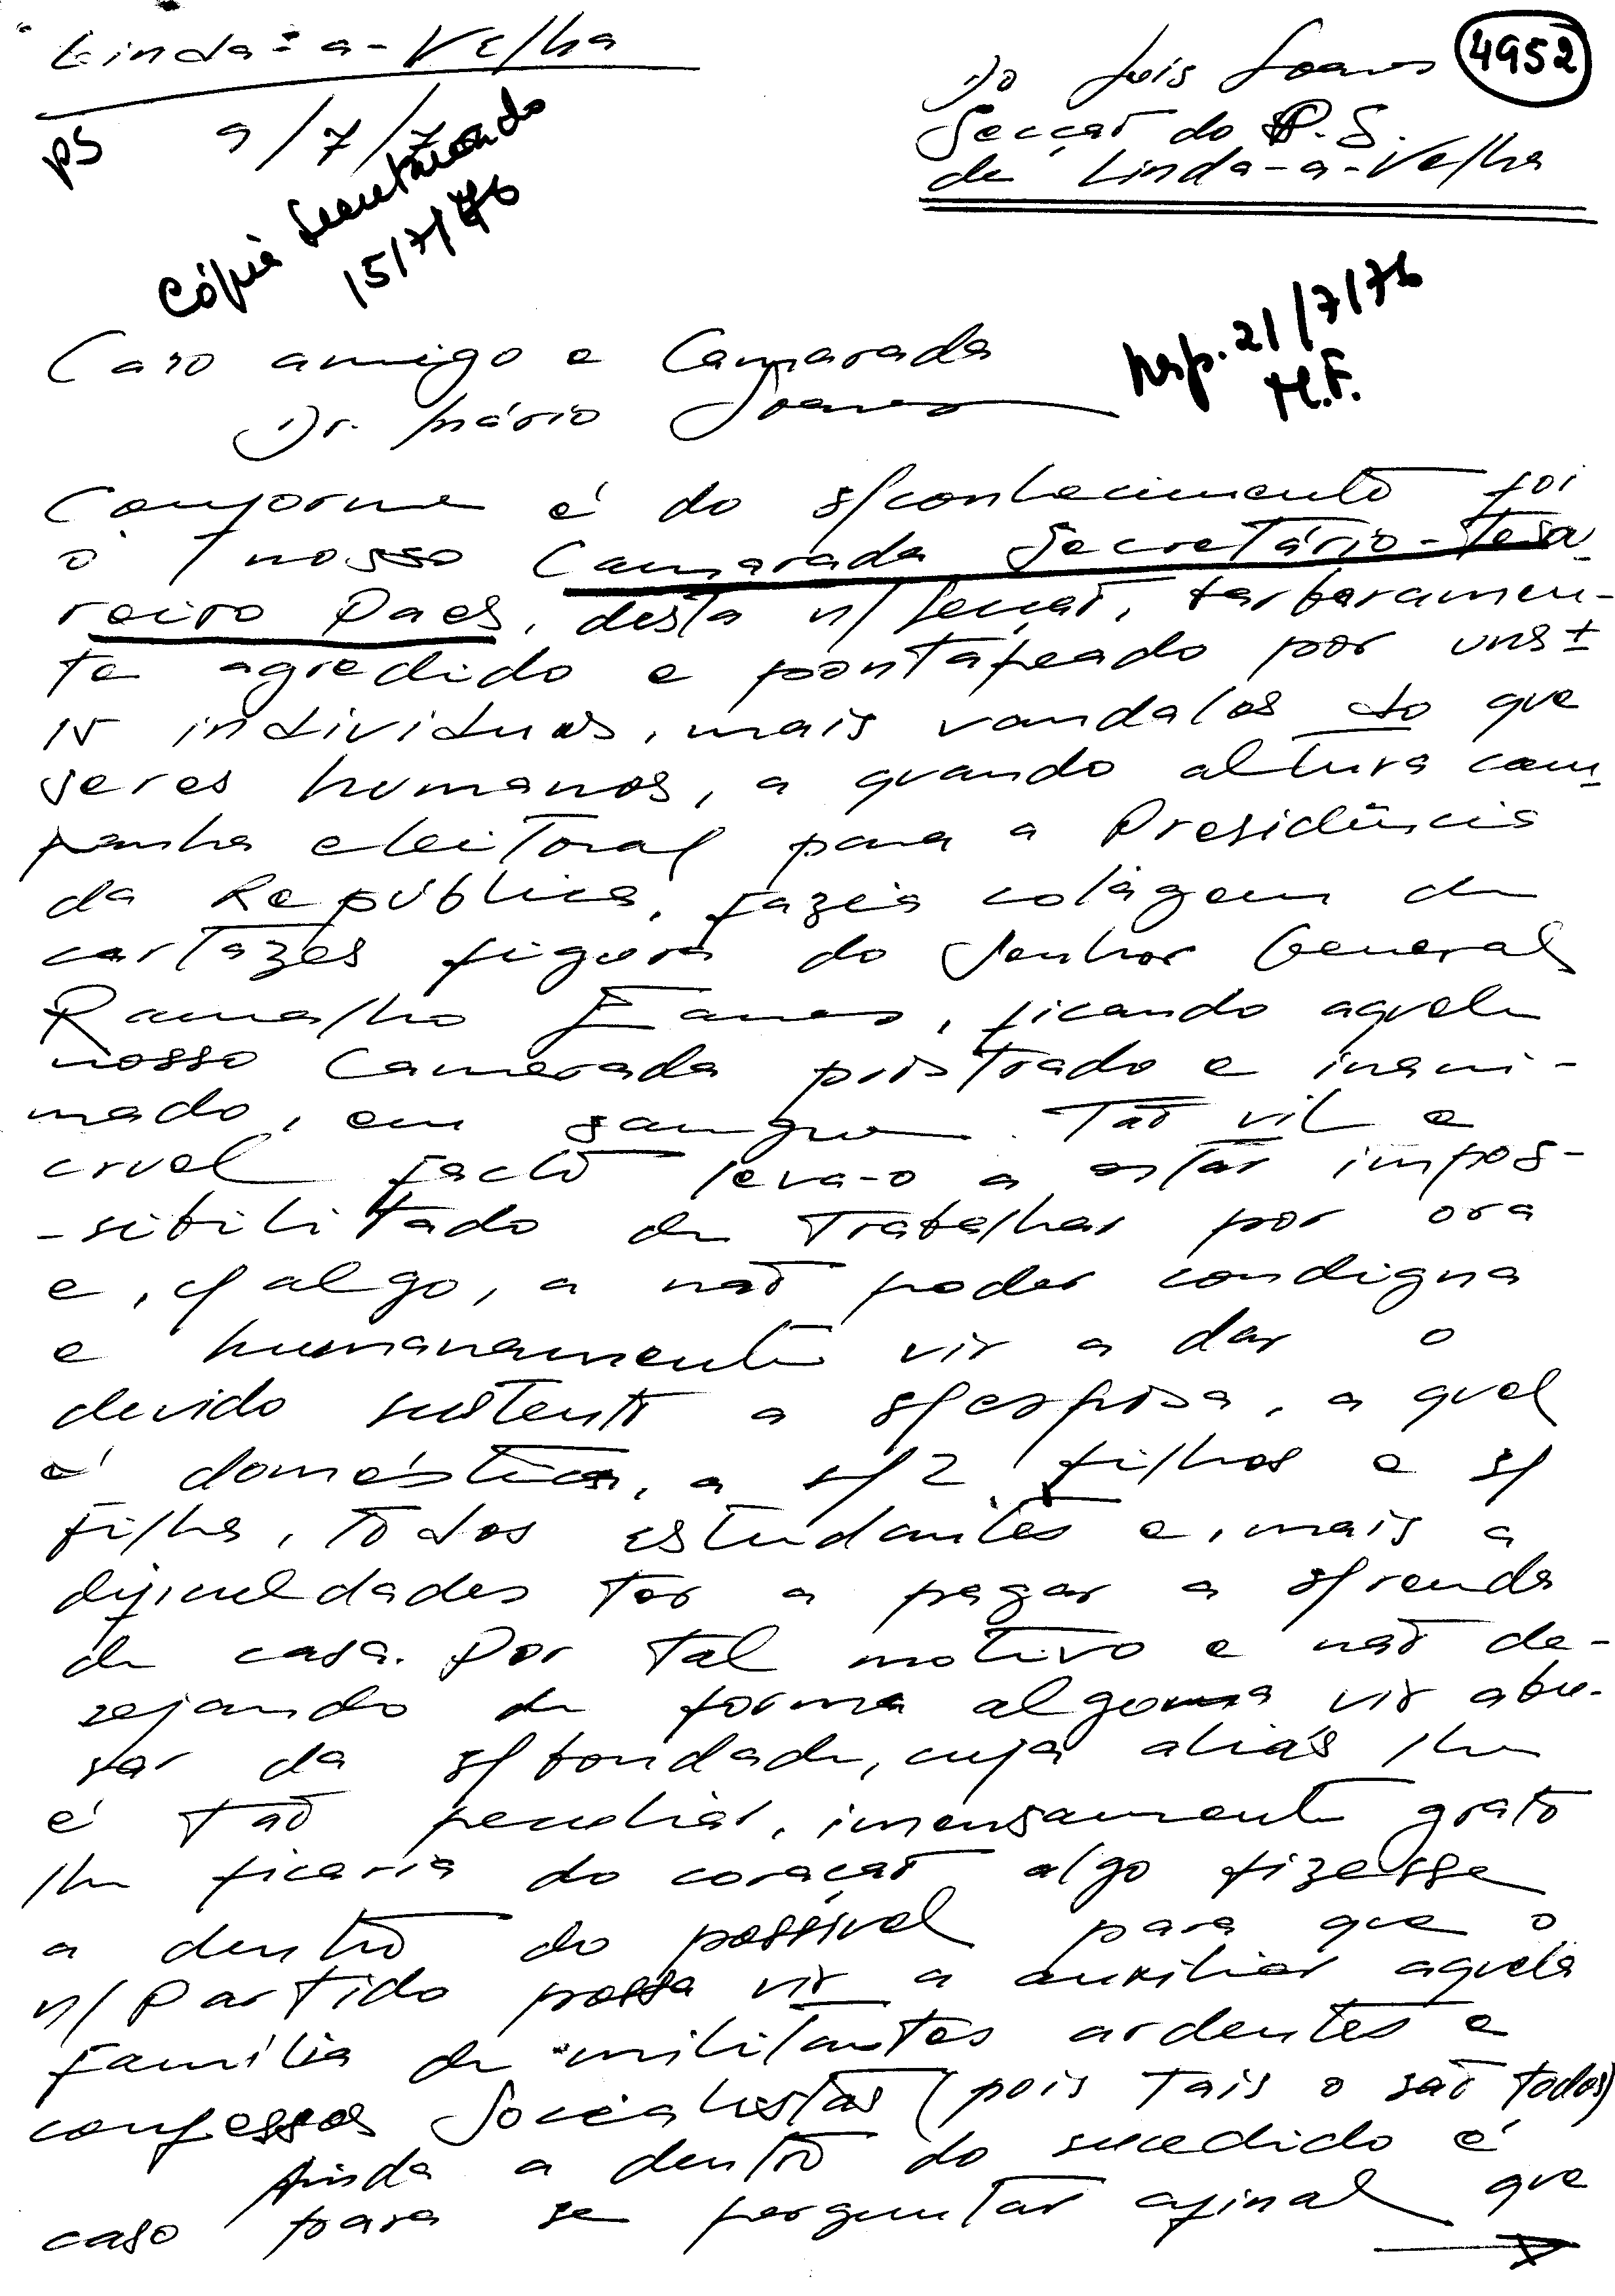 Linda-a-Velha
9/7/76
PS
Cópia Secretariado
15/7/76
4952
Do Luis Soares
Secção do P.S.
de Linda-a-Velha
resp. 21/7/76
M.F.
Caro amigo e Camarada
Dr. Mário Soares
Conforme é do s/conhecimento foi
o nosso Camarada Secretário-Tesou-
reiro Paes, desta n/ Secção, barbaramen-
te agredido e pontapeado por uns ±
15 individuos, mais vandalos do que
seres humanos, a quando altura cam-
panha eleitoral para a Presidência
da República, fazia colagem de
cartazes figura do Senhor General
Ramalho Eanes, ficando aquele
nosso Camarada prostrado e inani-
mado, em sangue. Tão vil e
cruel facto leva-o a estar impos-
-sibilitado de trabalhar por ora
e, c/ algo, a não poder condigna
e humanamente vir a dar o
devido sustento a s/esposa, a qual
é doméstica, a s/ 2 filhos e s/
filha, todos estudantes e, mais a
dificuldades ter a pagar a s/renda
de casa. Por tal motivo e não de-
sejando de forma alguma vir abu-
sar da s/ bondade, cuja aliás lhe
é tão peculiar, imensamente grato
lhe ficaria do coração algo fizesse
a dentro do possível para que o
n/ Partido possa vir a auxiliar aquela
família de militantes ardentes e
confessos Socialistas (pois tais o são todos)
Ainda a dentro do sucedido é
caso para se perguntar afinal que